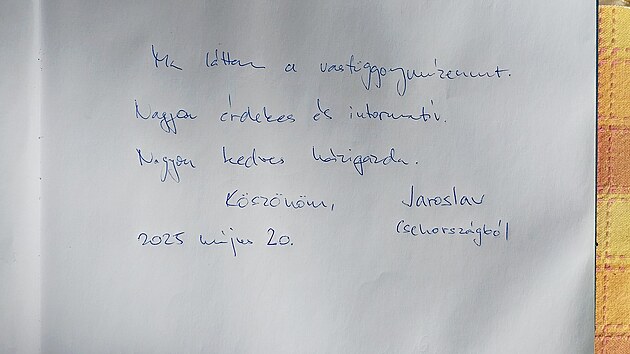 Ma láttam a vasfüggönymúzeumot.
Nagyon érdekes és informatív.
Nagyon kedves házigazda.
Köszönöm, Jaroslav
2025 május 20. Csehországból